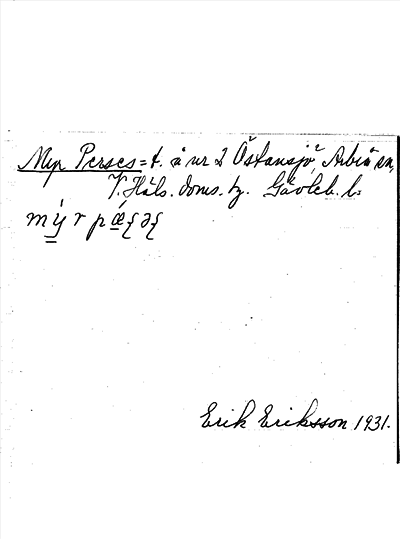 Myr Perses = t. å nr 2 Östansjö, Arbrå sn,
V. Häls. doms. tg. Gävleb. l.
Erik Eriksson 1931.